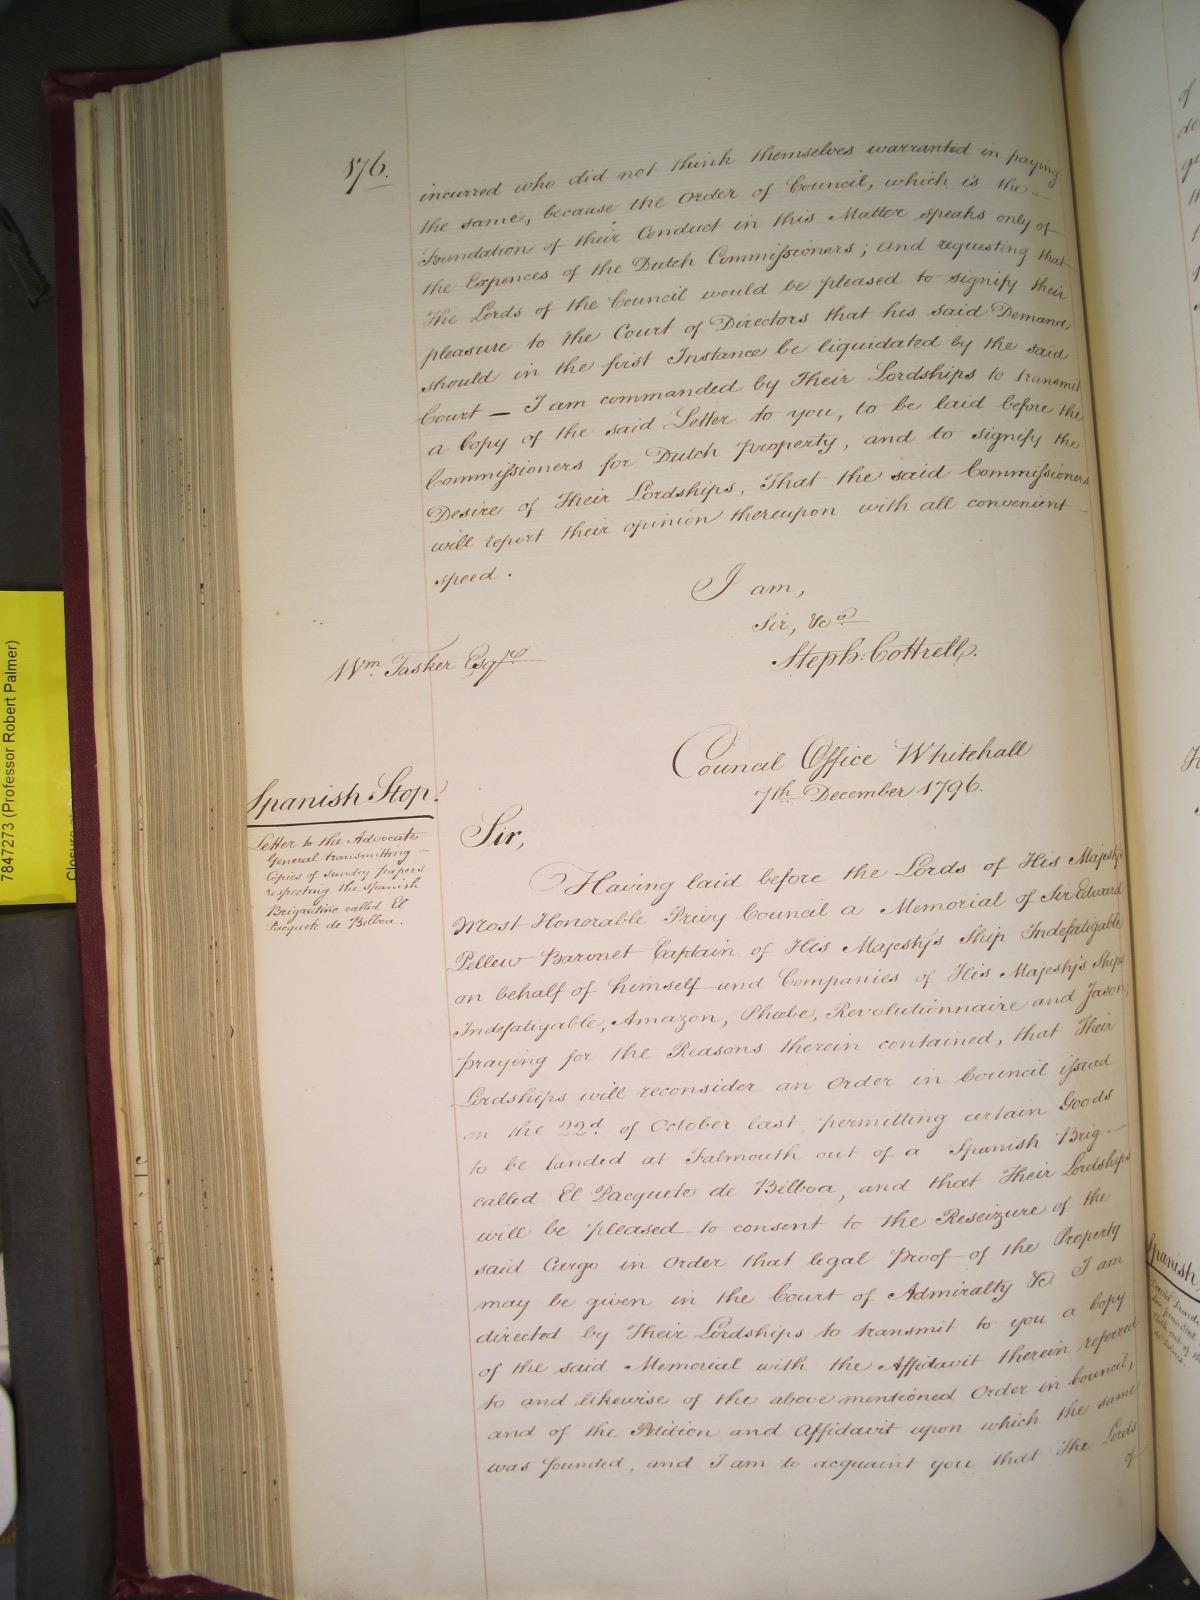 176.
incurred who did not think themselves warranted in paying
the same, because the Order of Council, which is the
Foundation of their Conduct in this Matter speaks only of
the Expences of the Dutch Commissioners; and requesting that
The Lords of the Council would be pleased to signify their
pleasure to the Court of Directors that his said Demand
should in the first Instance be liquidated by the said
Court — I am commanded by Their Lordships to transmit
a Copy of the said Letter to you, to be laid before the
Commissioners for Dutch property, and to signify the
Desire of Their Lordships, That the said Commissioners
will report their opinion thereupon with all convenient
speed.
I am,
Sir, &ca
Steph: Cottrell.
Wm. Tasker Esqre
Council Office Whitehall
7th December 1796.
Spanish Stop.
Letter to the Advocate
General transmitting
Copies of Sundry papers
respecting the Spanish
Brigantine called El
Pacquete de Bilboa.
Sir,
Having laid before the Lords of His Majesty's
Most Honorable Privy Council a Memorial of Sir Edward
Pellew Baronet Captain of His Majesty's Ship Indefatigable
on behalf of himself and Companies of His Majesty's Ships
Indefatigable, Amazon, Phœbe, Revolutionnaire and Jason,
praying for the Reasons therein contained, that Their
Lordships will reconsider an Order in Council issued
on the 22d of October last, permitting certain Goods
to be landed at Falmouth out of a Spanish Brig
called El Pacquete de Bilboa, and that Their Lordships
will be pleased to consent to the Reseizure of the
said Cargo in Order that legal proof of the Property
may be given in the Court of Admiralty &c. I am
directed by Their Lordships to transmit to you a Copy
of the said Memorial with the Affidavit therein referred
to and likewise of the above mentioned Order in Council,
and of the Petition and Affidavit upon which the same
was founded, and I am to acquaint you that The Lords
of
7847273 (Professor Robert Palmer)
Spanish